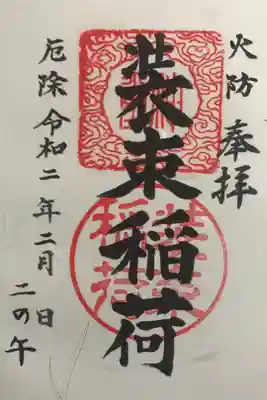 奉拝
火防
装束稲荷
厄除令和二年二月 日
二の午